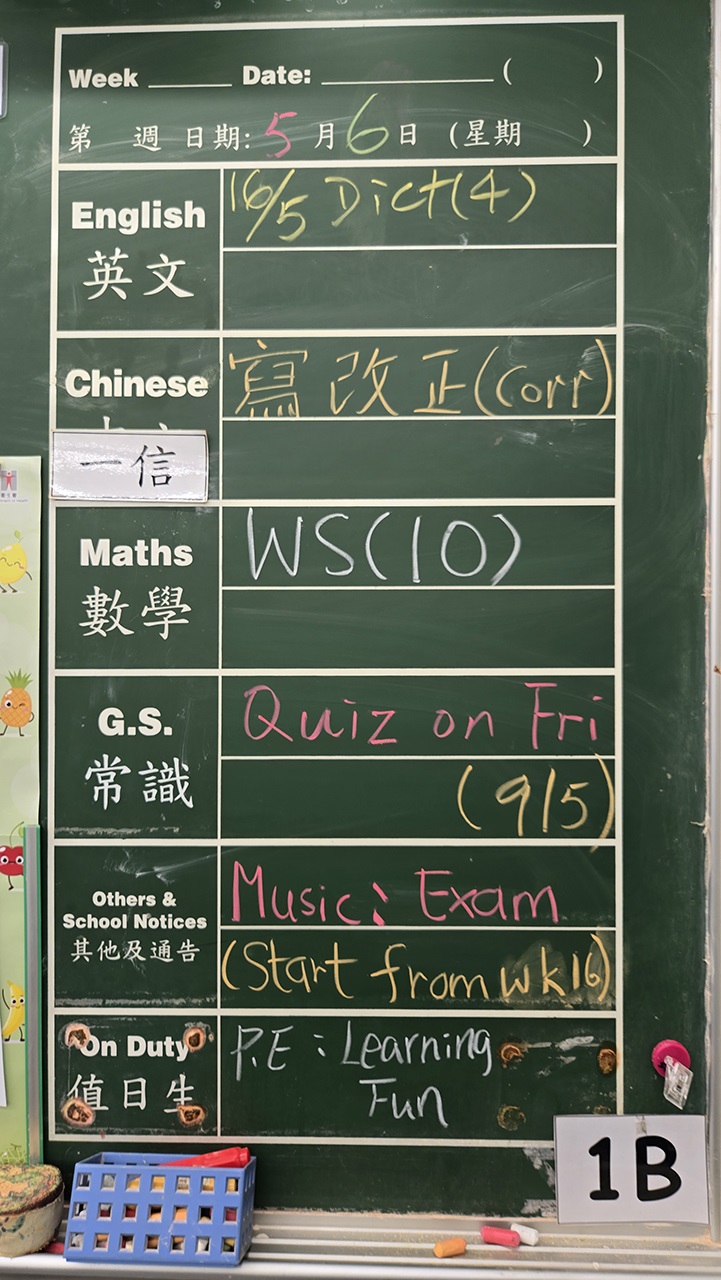 Week ____ Date: ________ (      )
第 週 日期: 5月6日 (星期      )
English
英文
16/5 Dict(4)
Chinese
寫改正(Corr)
一信
Maths
數學
WS(10)
G.S.
常識
Quiz on Fri
(9/5)
Others &
School Notices
其他及通告
Music: Exam
(Start from wk16)
On Duty
值日生
P.E: Learning
Fun
1B